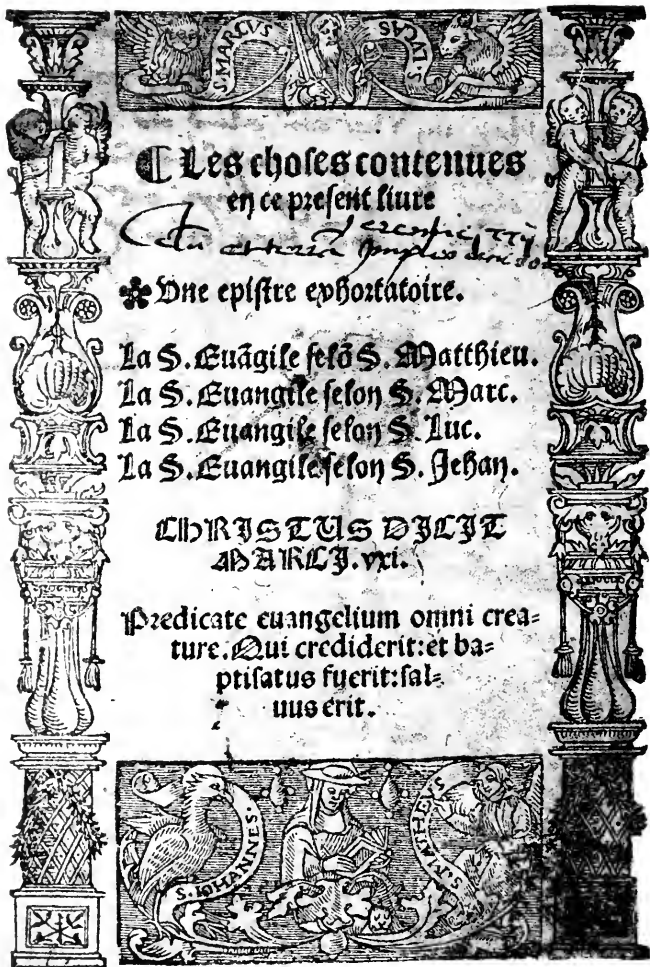 S. MARCVS
SVꓘAT S
¶ Les choses contenues
en ce present liure
✽ Vne epistre exhortatoire.
La S. Euãgile selõ S. Matthieu.
La S. Euangile selon S. Marc.
La S. Euangile selon S. Luc.
La S. Euangile selon S. Jehan.
CHRISTUS DICIT
MARCI. vxi.
Predicate euangelium omni crea=
ture. Qui crediderit: et ba=
ptisatus fuerit: sal=
uus erit.
S. IOHANNES.
S. MATHEVS